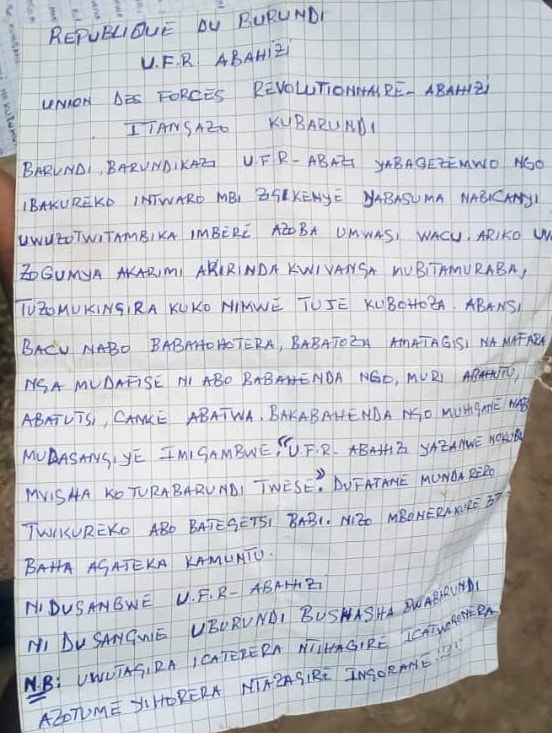 REPUBLIQUE DU BURUNDI
U.F.R. ABAHIZI
UNION DES FORCES REVOLUTIONNAIRE- ABAHIZI
ITANGAZO KUBARUNDI
BARUNDI, BARUNDIKAZI U.F.R- YABAGEZEMWO NGO
IBAKUREKO INTWARO MBI NABASUMA NABICANYI
UWUZOTWITAMBIKA IMBERE AZOBA UMWASI WACU. ARIKO
ZOGUMYA AKARIMI AKIRINDA KWIVANGA MUBITAMURABA,
TUZOMUKINGIRA KUKO NIMWE TUJE KUBOHOZA. ABANSI
BACU NABO BABAHOHOTERA, BABATOZA AMATAGISI NA
NGA MUDAFISE NI ABO BABAHENDA NGO, MURI ABAHUTU,
ABATUTSI, CANKE ABATWA. BAKABAHENDA NGO
MUDASANGIYE IMIGAMBWE. "U.F.R- ABAHIZI YAZANWE
MVISHA KO TURABARUNDI TWESE". DUFATANE MUNDA RERO
TWIKUREKO ABO BATEGETSI BABI. NIZO MBONERAKURE
BAHA AGATEKA KAMUNTU.
NI DUSANGWE U.F.R- ABAHIZI
NI DUSANGWE UBURUNDI BUSHASHA BWABIRUNDI
N.B: UWUTAGIRA ICATEREZA NTIHAGIRE
AZOTUME YIHORERA NTAZAGIRE INGORANE!!!